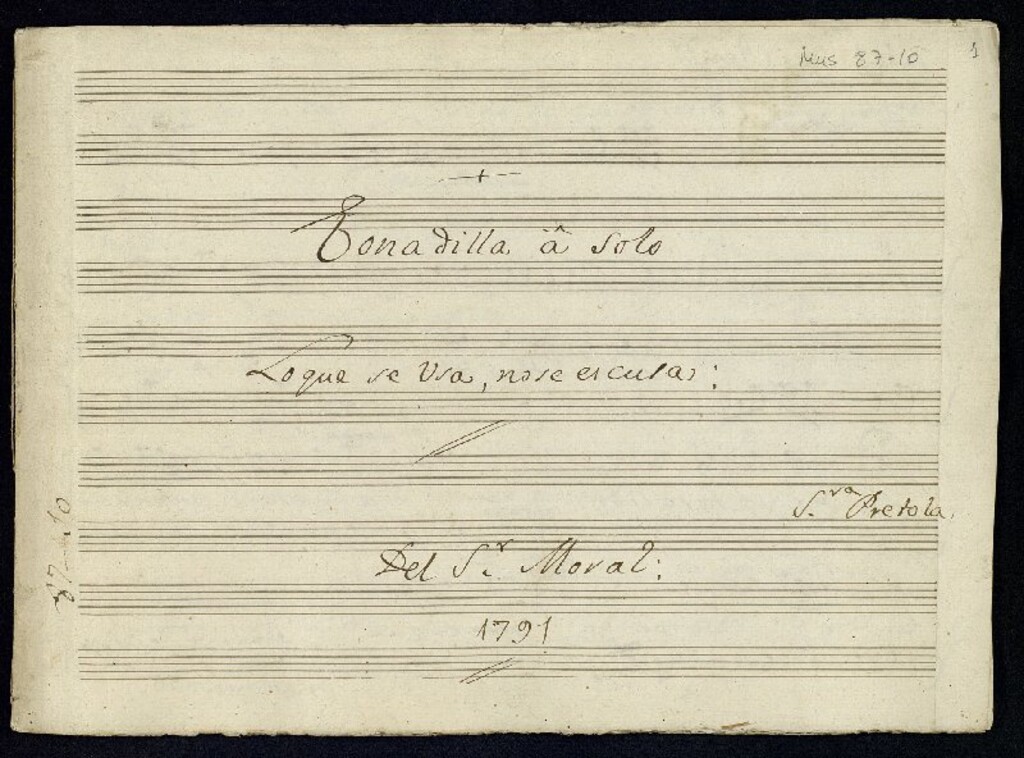 Mus 87-10
1
Tonadilla â Solo
Lo que se Usa, no se escusa:
S.ra Pretola.
Del S.r Moral:
1791
87-10